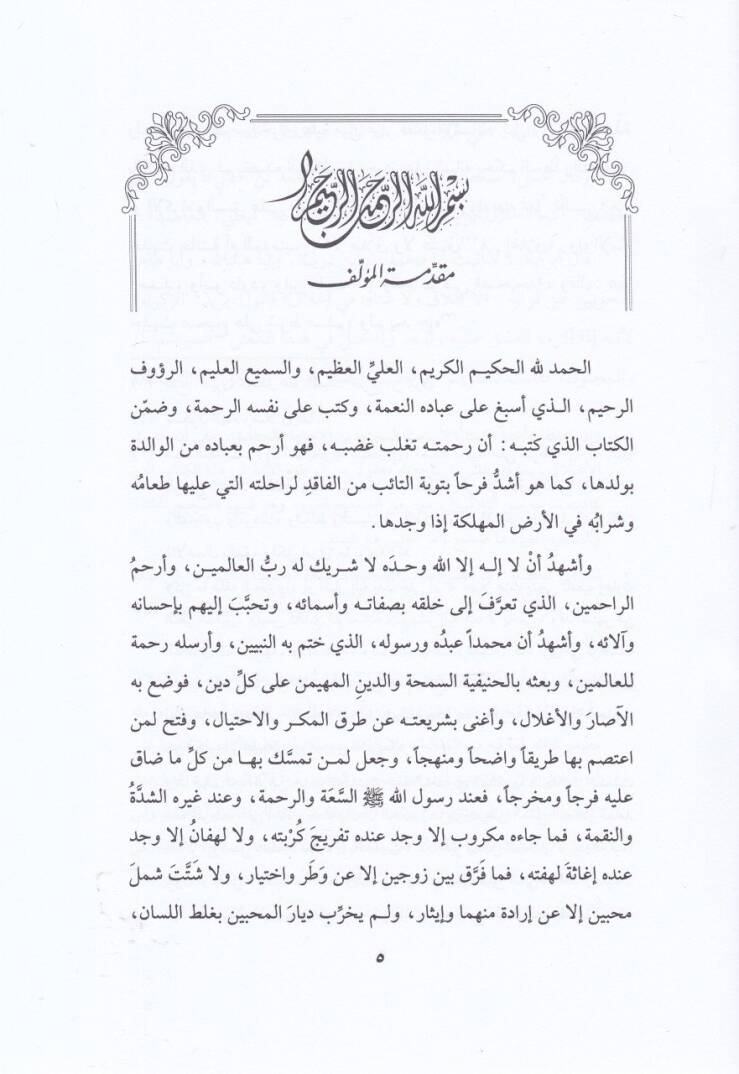 بسم الله الرحمن الرحيم
مقدّمة المؤلّف
الحمد لله الحكيم الكريم، العليِّ العظيم، والسميع العليم، الرؤوف
الرحيم، الذي أسبغ على عباده النعمة، وكتب على نفسه الرحمة، وضمّن
الكتاب الذي كتبه: أن رحمته تغلب غضبه، فهو أرحم بعباده من الوالدة
بولدها، كما هو أشدُّ فرحاً بتوبة التائب من الفاقدِ لراحلته التي عليها طعامُه
وشرابُه في الأرض المهلكة إذا وجدها.
وأشهدُ أنْ لا إله إلا الله وحدَه لا شريك له ربُّ العالمين، وأرحمُ
الراحمين، الذي تعرَّفَ إلى خلقه بصفاته وأسمائه، وتحبَّبَ إليهم بإحسانه
وآلائه، وأشهدُ أن محمداً عبدُه ورسوله، الذي ختم به النبيين، وأرسله رحمة
للعالمين، وبعثه بالحنيفية السمحة والدينِ المهيمن على كلِّ دين، فوضع به
الآصارَ والأغلال، وأغنى بشريعته عن طرق المكر والاحتيال، وفتح لمن
اعتصم بها طريقاً واضحاً ومنهجاً، وجعل لمن تمسَّك بها من كلِّ ما ضاق
عليه فرجاً ومخرجاً، فعند رسول الله ﷺ السَّعَة والرحمة، وعند غيره الشدَّةُ
والنقمة، فما جاءه مكروب إلا وجد عنده تفريجَ كُرْبته، ولا لهفانُ إلا وجد
عنده إغاثةَ لهفته، فما فَرَّق بين زوجين إلا عن وَطَر واختيار، ولا شَتَّتَ شملَ
محبين إلا عن إرادة منهما وإيثار، ولم يخرِّب ديارَ المحبين بغلط اللسان،
٥